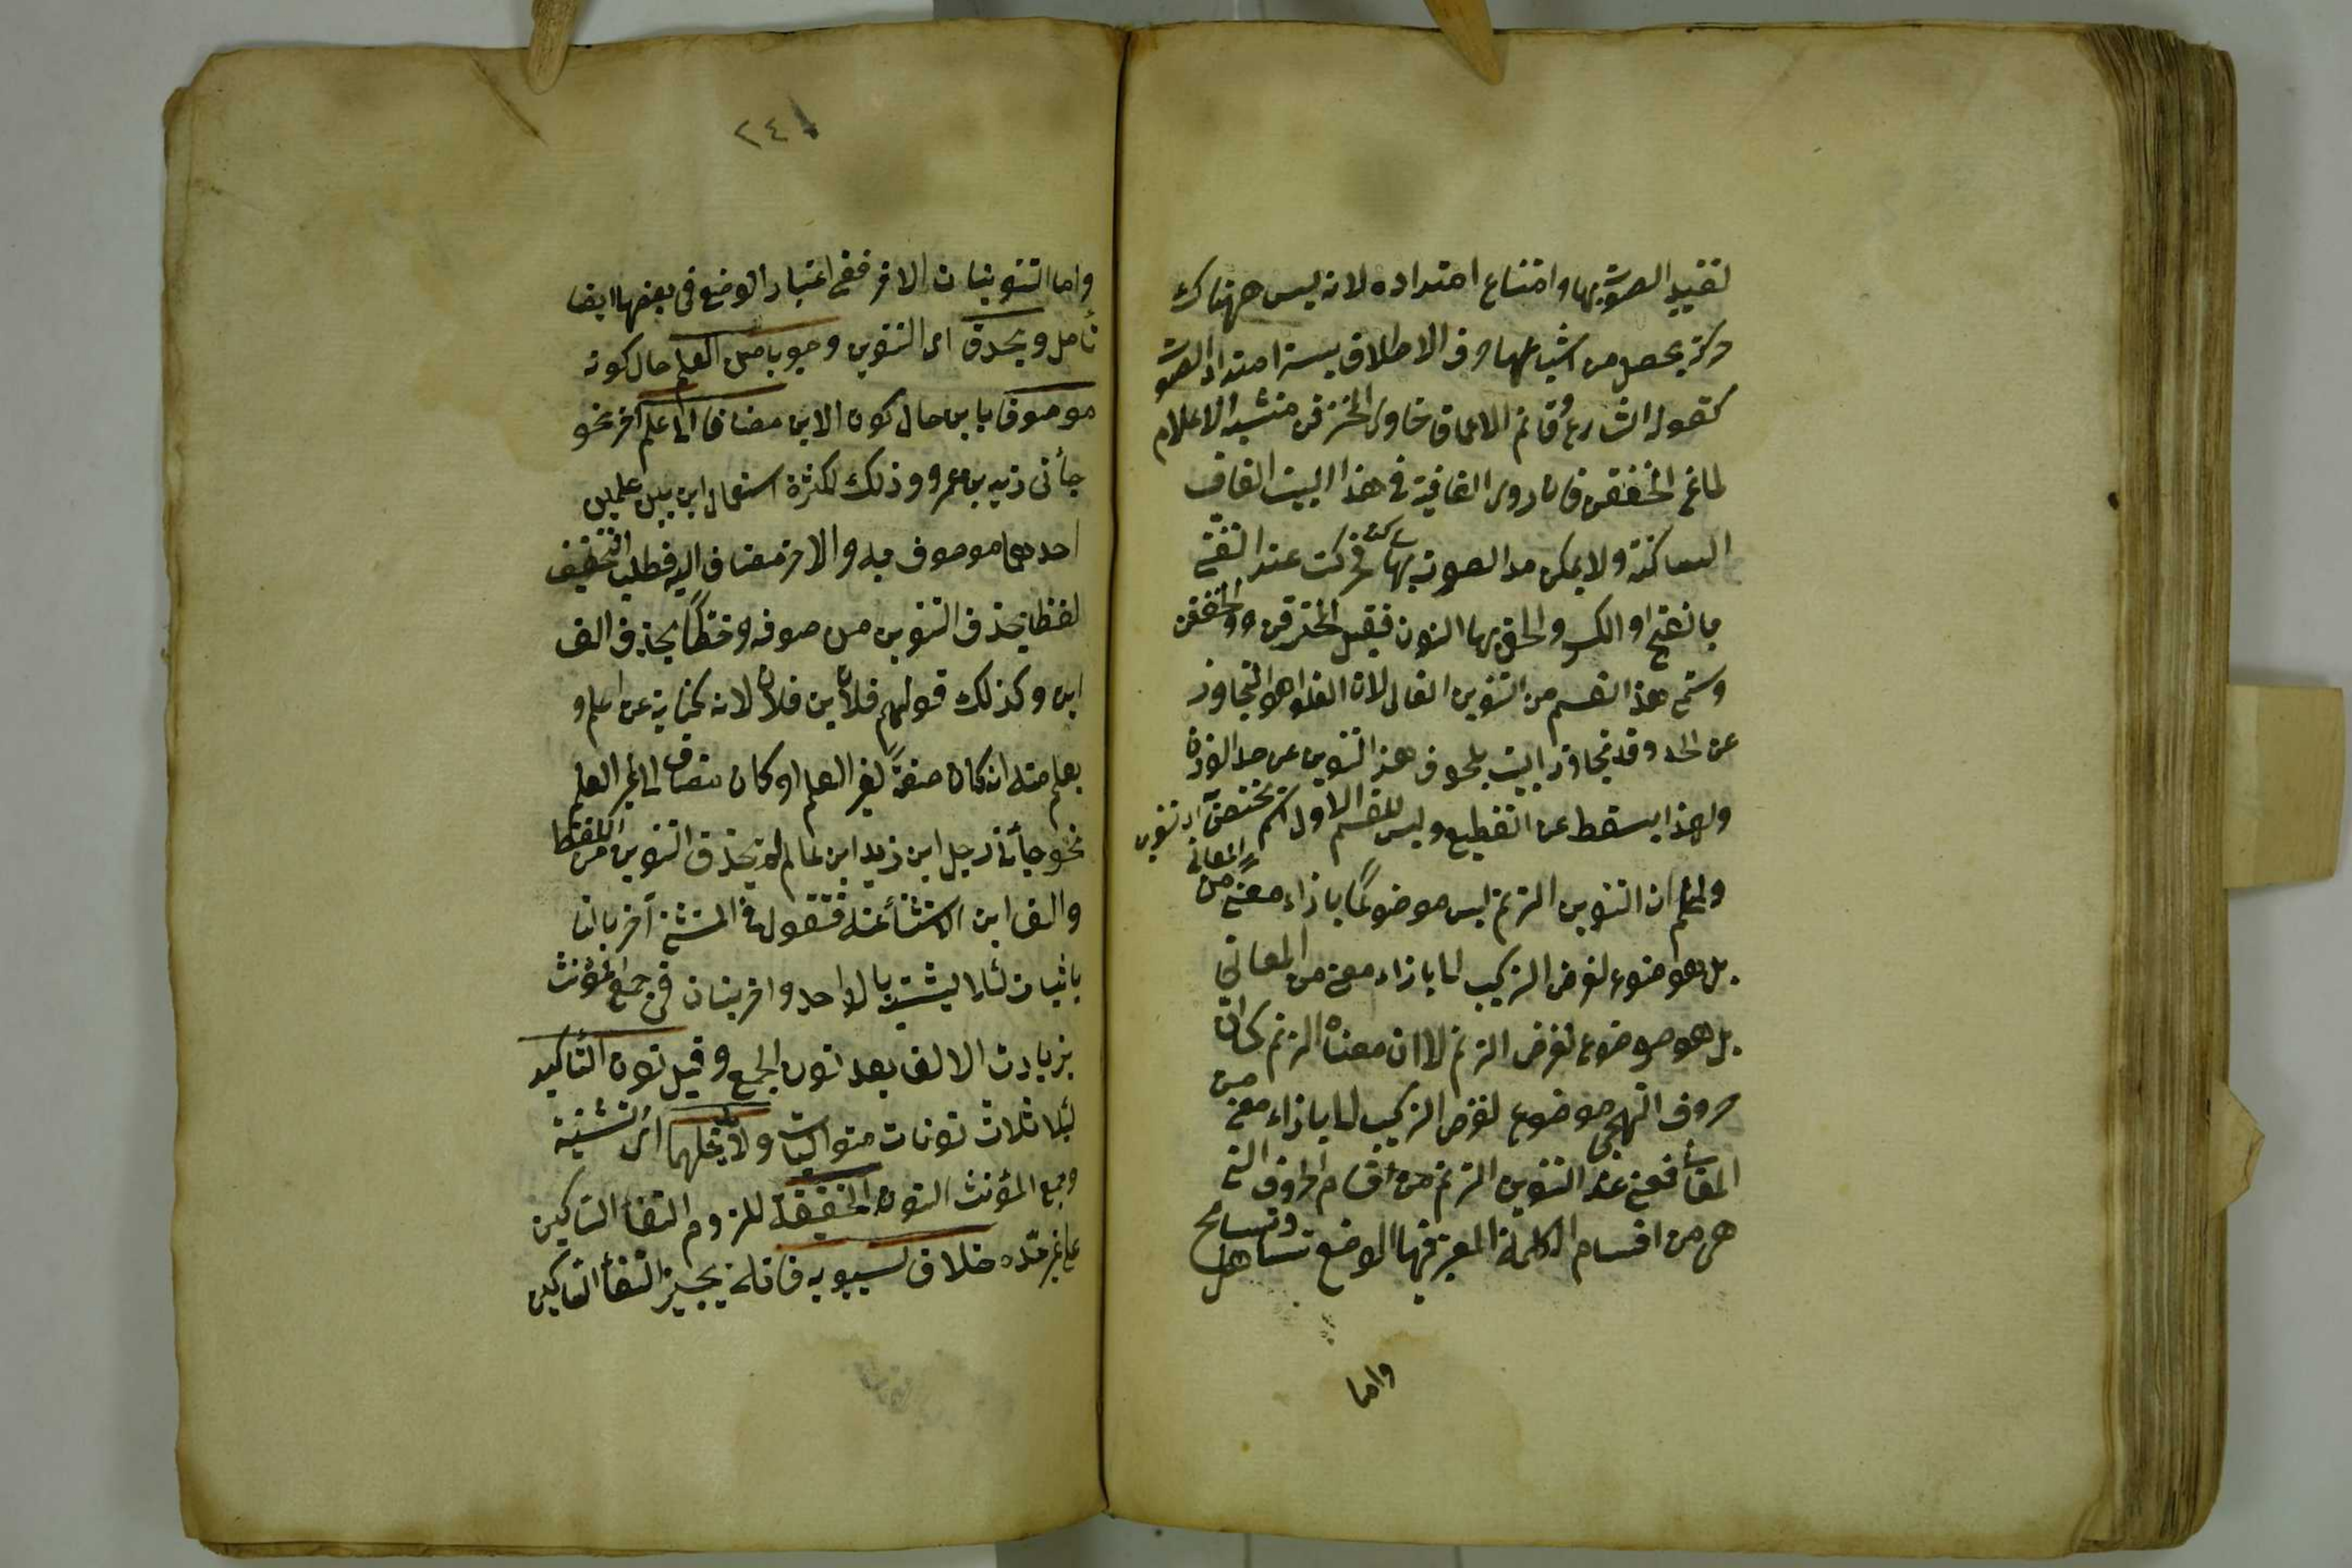 لتقييد الصوت بها وامتناع امتداده لانه ليس هناك
حركة يحصل من اشباعها حرف الاطلاق يتيسر امتداد الصوت
كقوله الشارع وقاتم الاعماق خاوى المخترقن مشتبه الاعلام
لماع الخفقن فان روى القافية فى هذا البيت القاف
الساكنة ولا يمكن مد الصوت بها فحركت عند التغنى
بالفتح او الكسر والحق بها النون فقيل المخترقن والخفقن
وسمى هذا القسم من التنوين الغالى لان الغلو هو التجاوز
عن الحد وقد تجاوز البيت بلحوق هذا التنوين عن حد الوزن
ولهذا يسقط عن التقطيع وليس للقسم الاول اسم يختص آى تنوين
واعلم ان التنوين الترنم ليس موضوعًا بازاء معنى من المعانى
بل هو موضوع لغرض التركيب لا بازاء معنى من المعانى
بل هو موضوع لغرض الترنم لا ان معناه الترنم كما ان
حروف التهجى موضوع لغرض التركيب لا بازاء معنى من
المعانى فعن عند التنوين الترنم من اقسام الحروف التى
هى من اقسام الكلمة المعتبر فيها الوضع تساهل وتسامح
واما
٢٤١
واما التنوينات الاخر ففى اعتبار الوضع فى بعضها ايضا
تأمل ويحذف اى التنوين وجوبا من العلم حال كونه
موصوفا بابن حال كون الابن مضافا الى علم آخر نحو
جأنى زيد بن عمرو وذلك لكثرة استعمال ابن بين علمين
احدهما موصوف به والاخر مضاف اليه فطلب التخفيف
لفظا بحذف التنوين من موصوفه وخطًا بحذف الف
ابن وكذلك قولهم فلان بن فلان لانه كناية عن اعلم و
يعلم منه انه كان صفةً لغير العلم او كان مضاف الى غير العلم
نحو جأنى رجل ابن زيد ابن عالم لم يحذف التنوين من اللفظ
والف ابن الاستثنأ عنه فتقول فى المثنى آخر بانا
باثبات لئلا يشتبه بالواحد واضربنان فى جمع المؤنث
بزيادت الالف بعد نون الجمع وقيل نون التأكيد
لئلا ثلاث نونات متواليات ولا تدخلهما اى التثنية
وجمع المؤنث النون الخفيفة للزوم التقأ الساكنين
على غير حده خلاف لسيبويه فانه يجيز التقأ الساكنين